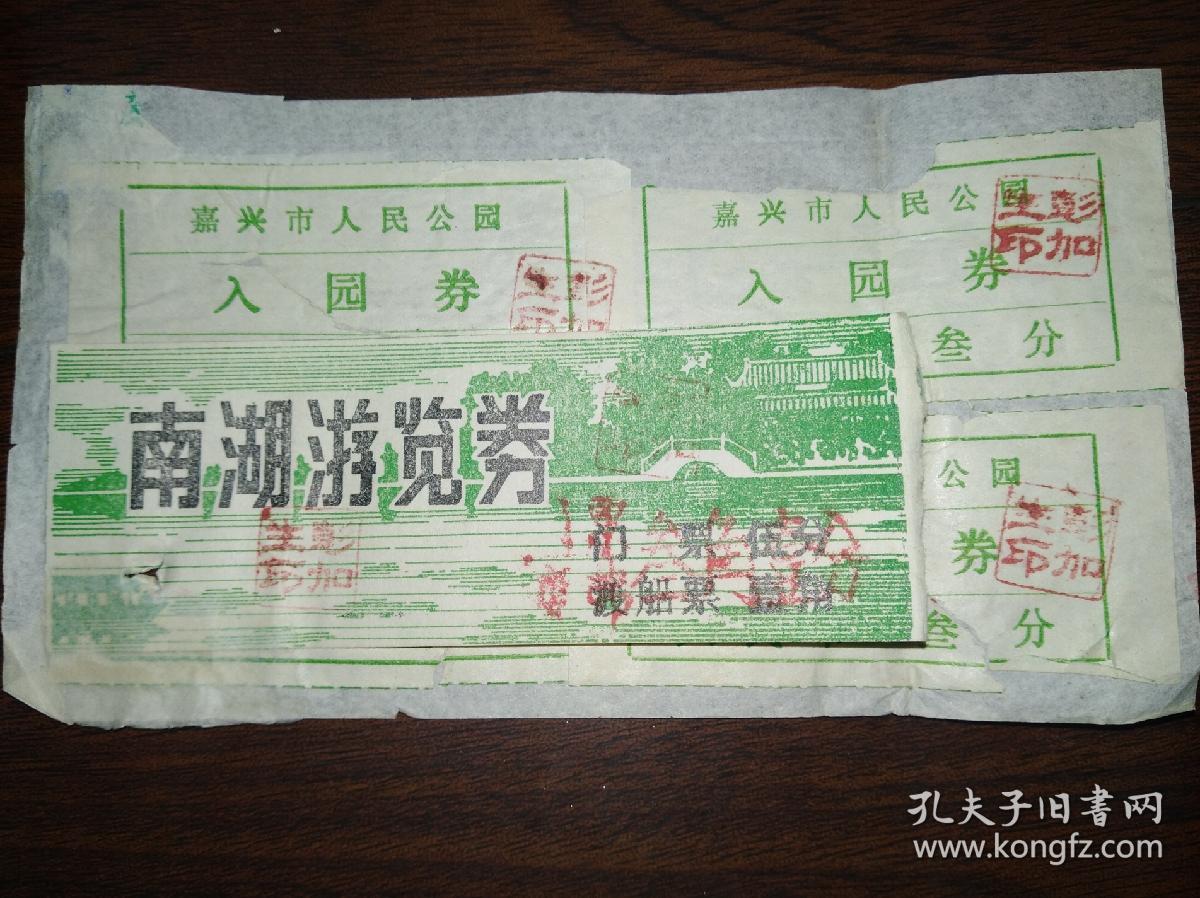 嘉兴市人民公园
入园券
彭加生印
嘉兴市人民公园
入园券
叁分
彭加生印
南湖游览券
门票 伍分
渡船票 壹角
彭加生印
公园
券
叁分
彭加生印
孔夫子旧书网
www.kongfz.com